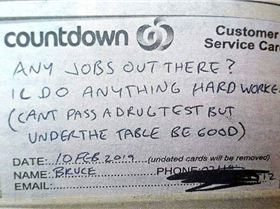 countdown
Customer
Service Car
ANY JOBS OUT THERE?
IL DO ANYTHING HARD WORKE
(CANT PASS A DRUG TEST BUT
UNDER THE TABLE BE GOOD)
DATE: 10 FEB 2019 (undated cards will be removed)
NAME: BRUCE PHONE:
EMAIL: